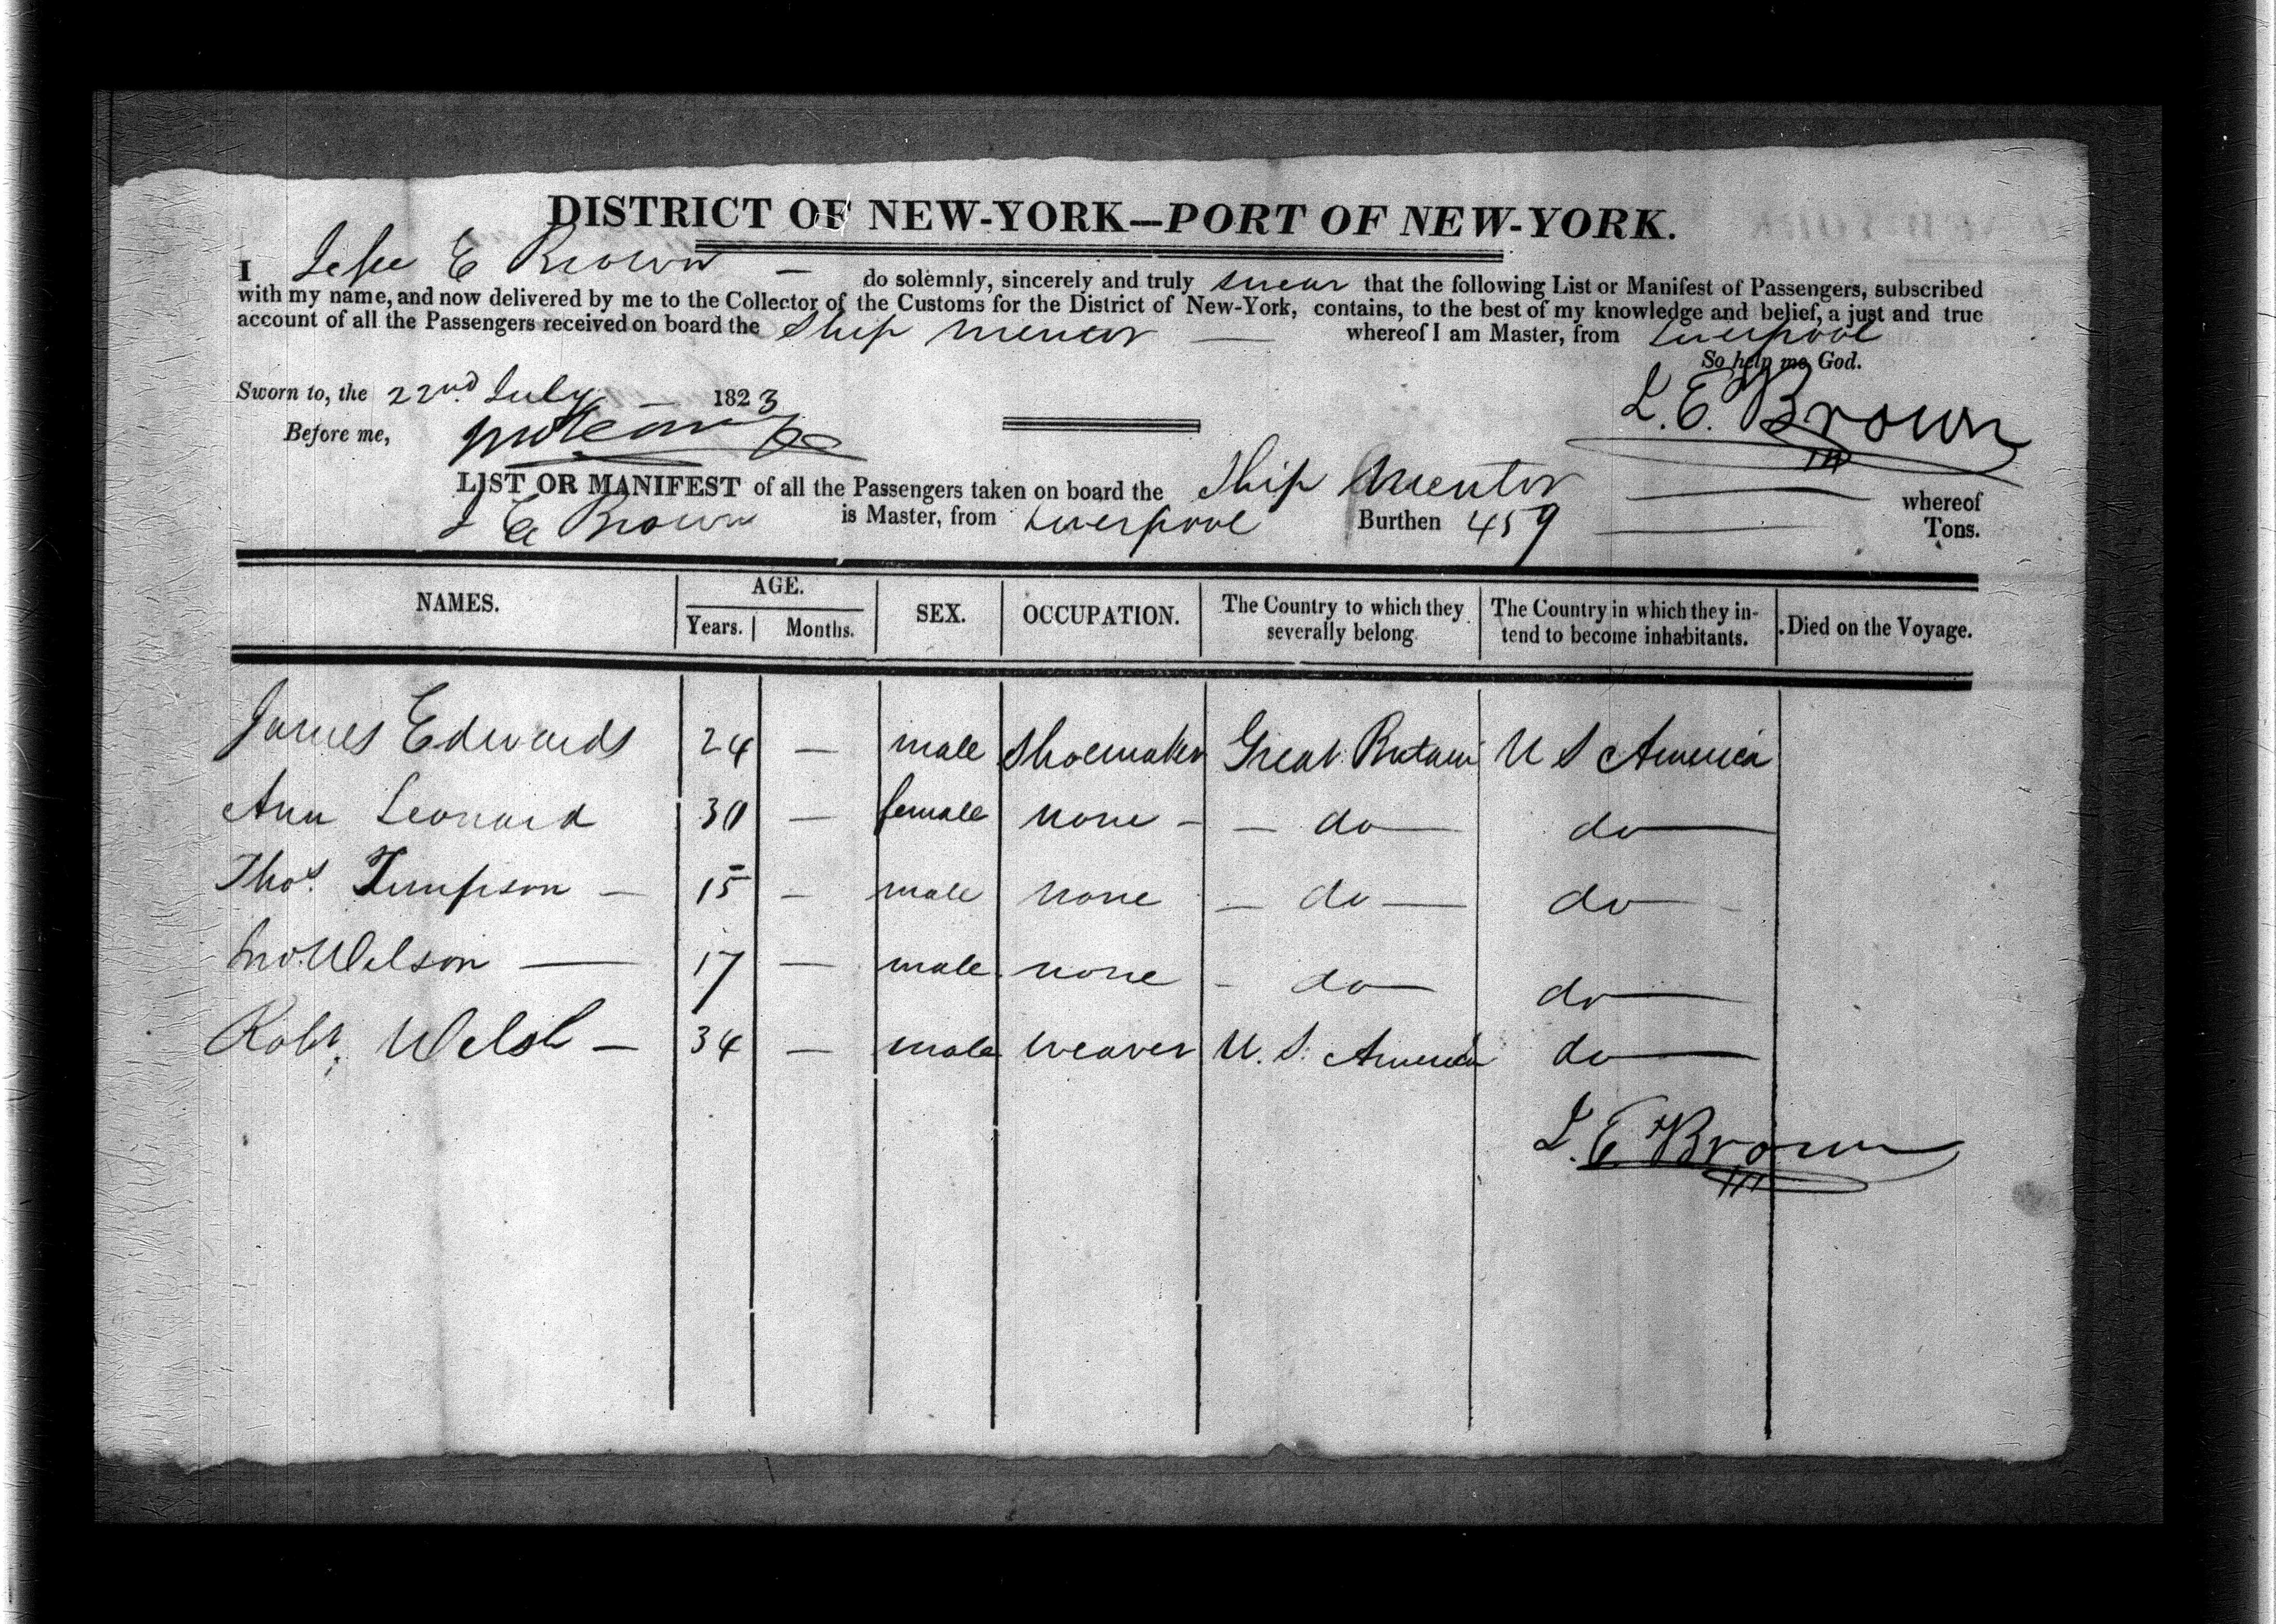 DISTRICT OF NEW-YORK—PORT OF NEW-YORK.
I E Brown — do solemnly, sincerely and truly swear that the following List or Manifest of Passengers, subscribed
with my name, and now delivered by me to the Collector of the Customs for the District of New-York, contains, to the best of my knowledge and belief, a just and true
account of all the Passengers received on board the Ship Mentor — whereof I am Master, from Liverpool
So help me God.
Sworn to, the 22nd July — 1823
L. E. Brown
Before me,
LIST OR MANIFEST of all the Passengers taken on board the Ship Mentor whereof
L E Brown is Master, from Liverpool Burthen 459 Tons.
NAMES. AGE. Years. Months. SEX. OCCUPATION. The Country to which they severally belong. The Country in which they intend to become inhabitants. Died on the Voyage.
James Edwards 24 — male Shoemaker Great Britain U S America
Ann Leonard 30 — female none — — do — do —
Thos. Timpson — 15 — male none — do — do —
Jno. Wilson — 17 — male none — do — do —
Robt. Welsh — 34 — male weaver U. S. America do —
L. E. Brown